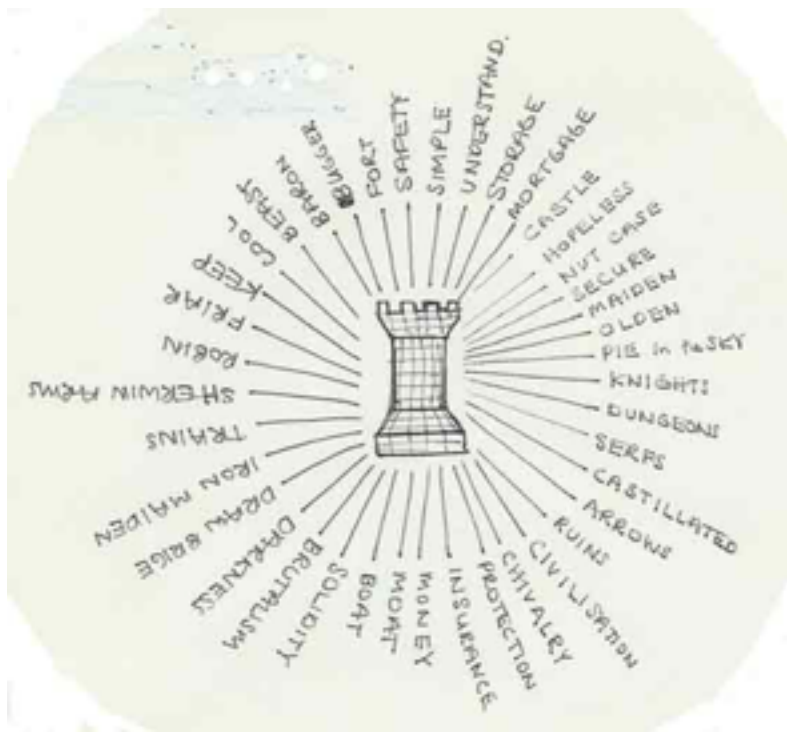 FORT
SAFETY
SIMPLE
UNDERSTAND.
STORAGE
MORTGAGE
CASTLE
HOPELESS
NUT CASE
SECURE
MAIDEN
OLDEN
PIE in the SKY
KNIGHTS
DUNGEONS
SERFS
CASTILLATED
ARROWS
RUINS
CIVILISATION
CHIVALRY
PROTECTION
INSURANCE
MONEY
MOAT
BOAT
SOLIDITY
BRUTALISM
DARKNESS
DRAW BRIGE
IRON MAIDEN
TRAINS
SHERWIN ARMS
ROBIN
FRIAR
KEEP
COOL
BEAST
BARON
BUGGER